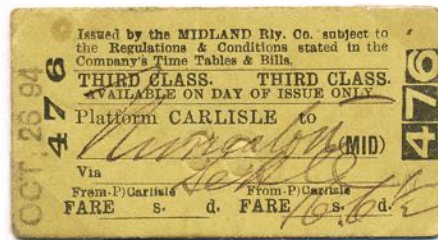 Issued by the MIDLAND Rly. Co. subject to
the Regulations & Conditions stated in the
Company's Time Tables & Bills.
THIRD CLASS. THIRD CLASS.
AVAILABLE ON DAY OF ISSUE ONLY
Platform CARLISLE to
Nuneaton (MID)
Via
From-P) Carlisle From-P) Carlisle
FARE s. d. FARE 16 s. 6 d. ½
476
476
OCT 26 94